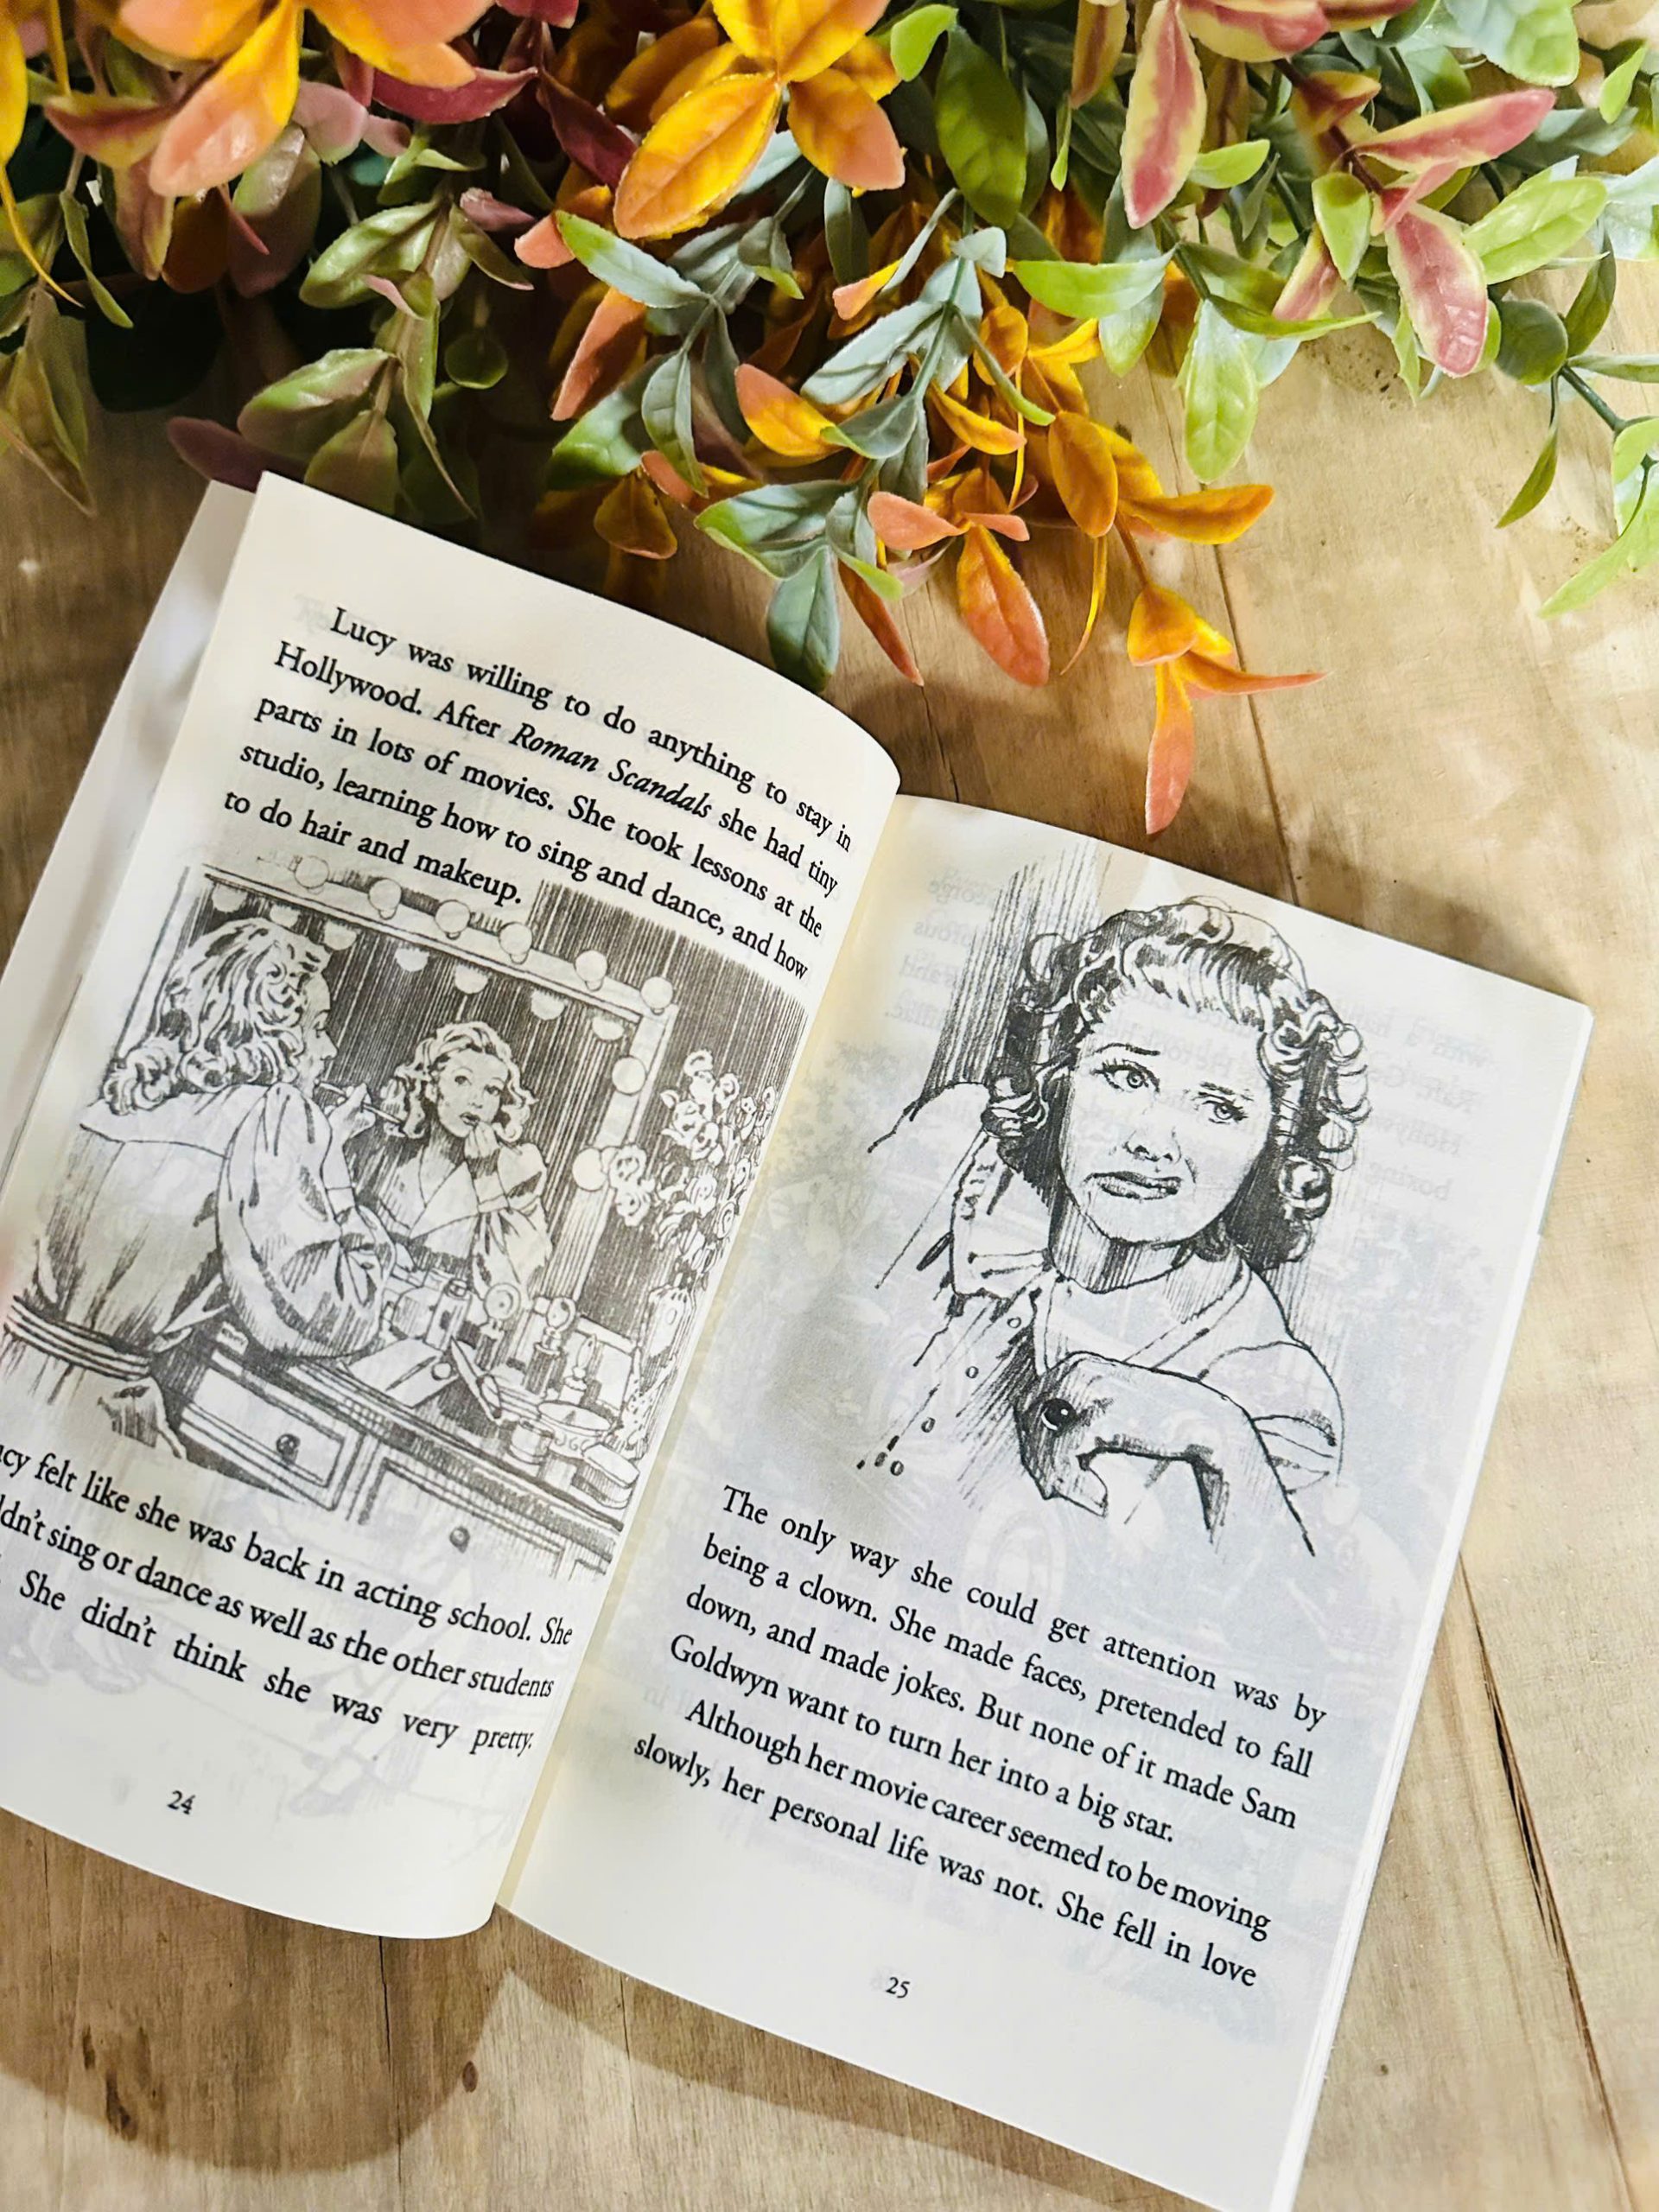 Lucy was willing to do anything to stay in
Hollywood. After Roman Scandals she had tiny
parts in lots of movies. She took lessons at the
studio, learning how to sing and dance, and how
to do hair and makeup.
felt like she was back in acting school. She
sing or dance as well as the other students
She didn't think she was very pretty.
24
The only way she could get attention was by
being a clown. She made faces, pretended to fall
down, and made jokes. But none of it made Sam
Goldwyn want to turn her into a big star.
Although her movie career seemed to be moving
slowly, her personal life was not. She fell in love
25